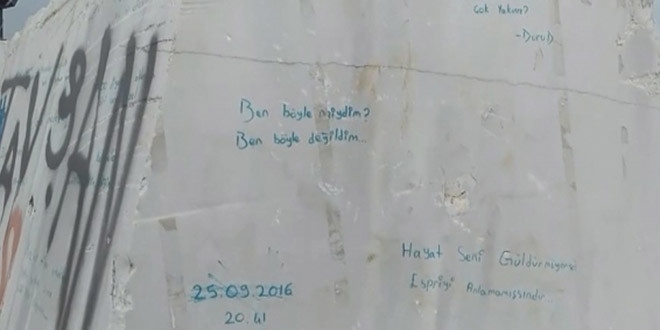 Çok Yakını?
-DuruD.
Ben böyle miydim?
Ben böyle değildim...
Hayat Seni Güldürmüyorsa
Espriyi Anlamamışsındır
25.09.2016
20.41